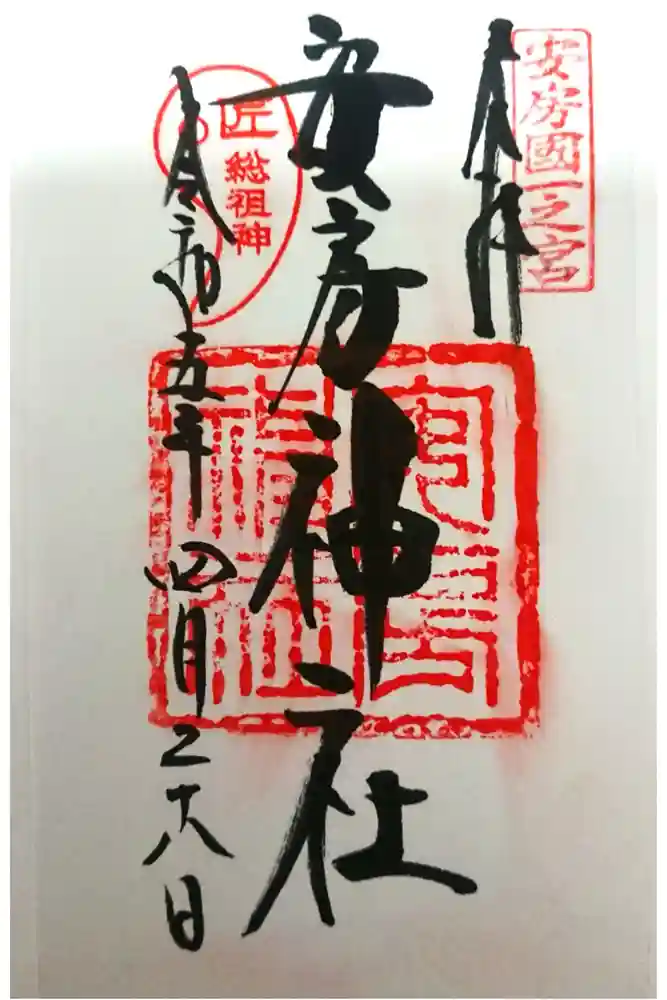 安房國一之宮
奉拝
安房神社
安房神社
匠
総祖神
令和五年四月二十八日